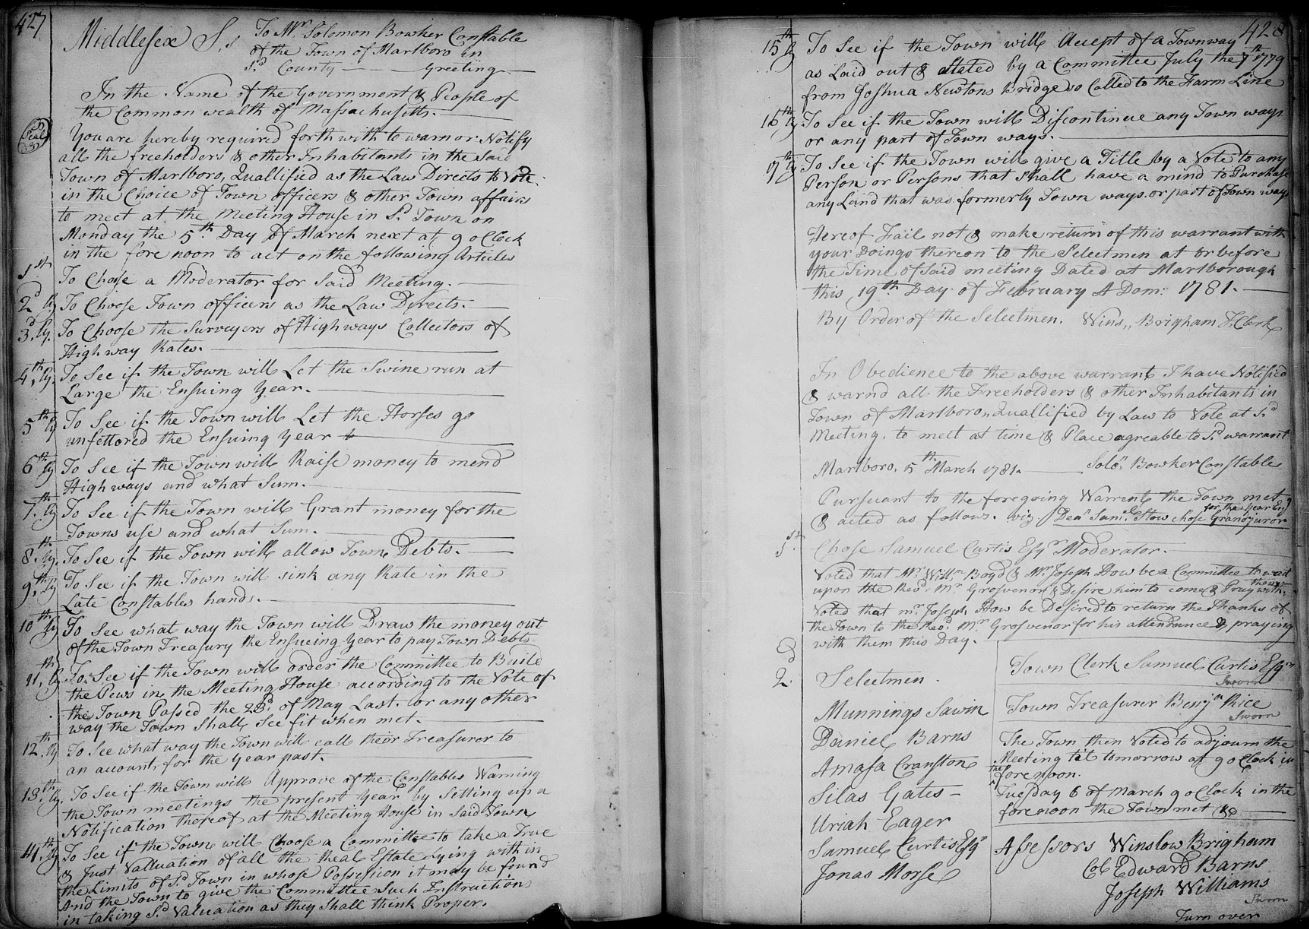 427
Middlesex Ss To Mr. Solomon Bowker Constable
of the Town of Marlboro in
Sd County Greeting
In the Name of the Government & People of
the Common wealth of Massachusitts.
Seal
You are hereby required forthwith to warn or Notify
all the freeholders & other Inhabitants in the Said
Town of Marlboro, Quallified as the Law Directs to Vote
in the Choice of Town officers & other Town affairs
to meet at the Meeting House in Sd Town on
Monday the 5th Day of March next at 9 o Clock
in the fore noon to act on the following Articles
1st To Chose a Moderator for Said Meeting.
2dly To Choose Town officers as the Law Directs.
3dly To Choose the Surveyers of Highways Collectors of
High way Rates.
4thly To See if the Town will Let the Swine run at
Large the Ensuing Year.
5thly To See if the Town will Let the Horses go
unfettered the Ensuing Year
6thly To See if the Town will Raise money to mend
High ways and what Sum.
7thly To See if the Town will Grant money for the
Towns use and what Sum.
8thly To See if the Town will allow Town Debts.
9thly To See if the Town will sink any Rate in the
Late Constables hands.
10thly To See what way the Town will Draw the money out
of the Town Treasury the Ensueing Year to pay Town Debts
11thly To See if the Town will order the Committee to Build
the Pews in the Meeting House according to the Vote of
the Town Passed the 23d of May Last. or any other
way the Town Shall See fit when met.
12thly To See what way the Town will call their Treasurer to
an account, for the year past.
13thly To See if the Town will Approve of the Constables Warning
the Town meetings the present Year by Setting up a
Notification thereof at the Meeting House in Said Town
14thly To See if the Town will Choose a Committee to take a True
& Just Valuation of all the Real Estate lying with in
the Limits of Sd Town in whose Possession it may be found
and the Town to give the Committee Such Instruction
in taking Sd Valuation as they Shall think Proper.
428
15thly To See if the Town will Accept of a Townway
as Laid out & Stated by a Committee July the 7th 1779
from Joshua Newtons Bridge so Called to the Farm Line
16thly To See if the Town will Discontinue any Town ways
or any part of Town ways.
17thly To See if the Town will give a Title by a Vote to any
Person or Persons that Shall have a mind to Purchase
any Land that was formerly Town ways. or part of Town ways
Hereof Fail not & make return of this warrant with
your Doings thereon to the Selectmen at or before
the Time of Said meeting Dated at Marlborough
this 19th Day of February A Dom: 1781.
By Order of the Selectmen. Wins,, Brigham T Clerk
In Obedience to the above warrant I have Notified
& warnd all the Freeholders & other Inhabitants in
Town of Marlboro,, Quallified by Law to Vote at Sd
Meeting, to meet at time & Place agreable to Sd warrant
Marlboro, 5th March 1781. Solon Bowker Constable
Pursuant to the foregoing Warrent the Town met
& acted as follows. viz Dean Saml Stow chose Grandjuror
for the Year
1st Chose Samuel Curtis Esqr Moderator.
Voted that Mr. Willm Boyd & Mr. Joseph How be a Committee to wait
upon the Revd Mr Grosvenor & Desire him to come & Pray with
them
Voted that mr. Joseph How be Desired to return the Thanks of
the Town to the Revd Mr Grosvenor for his attendance & praying
with them this Day.
2d Selectmen.
Munnings Sawin
Daniel Barns
Amasa Cranston
Silas Gates
Uriah Eager
Samuel Curtis Esqr
Jonas Morse
Town Clerk Samuel Curtis Esqr
Sworn
Town Treasurer Benjn Rice
Sworn
The Town then Voted to adjourn the
Meeting till tomorrow at 9 o Clock in
the forenoon.
Tuesday 6 of March 9 o Clock in the
forenoon the Town met &
Assessors Winslow Brigham
Edward Barns
Joseph Williams
Sworn
Turn over